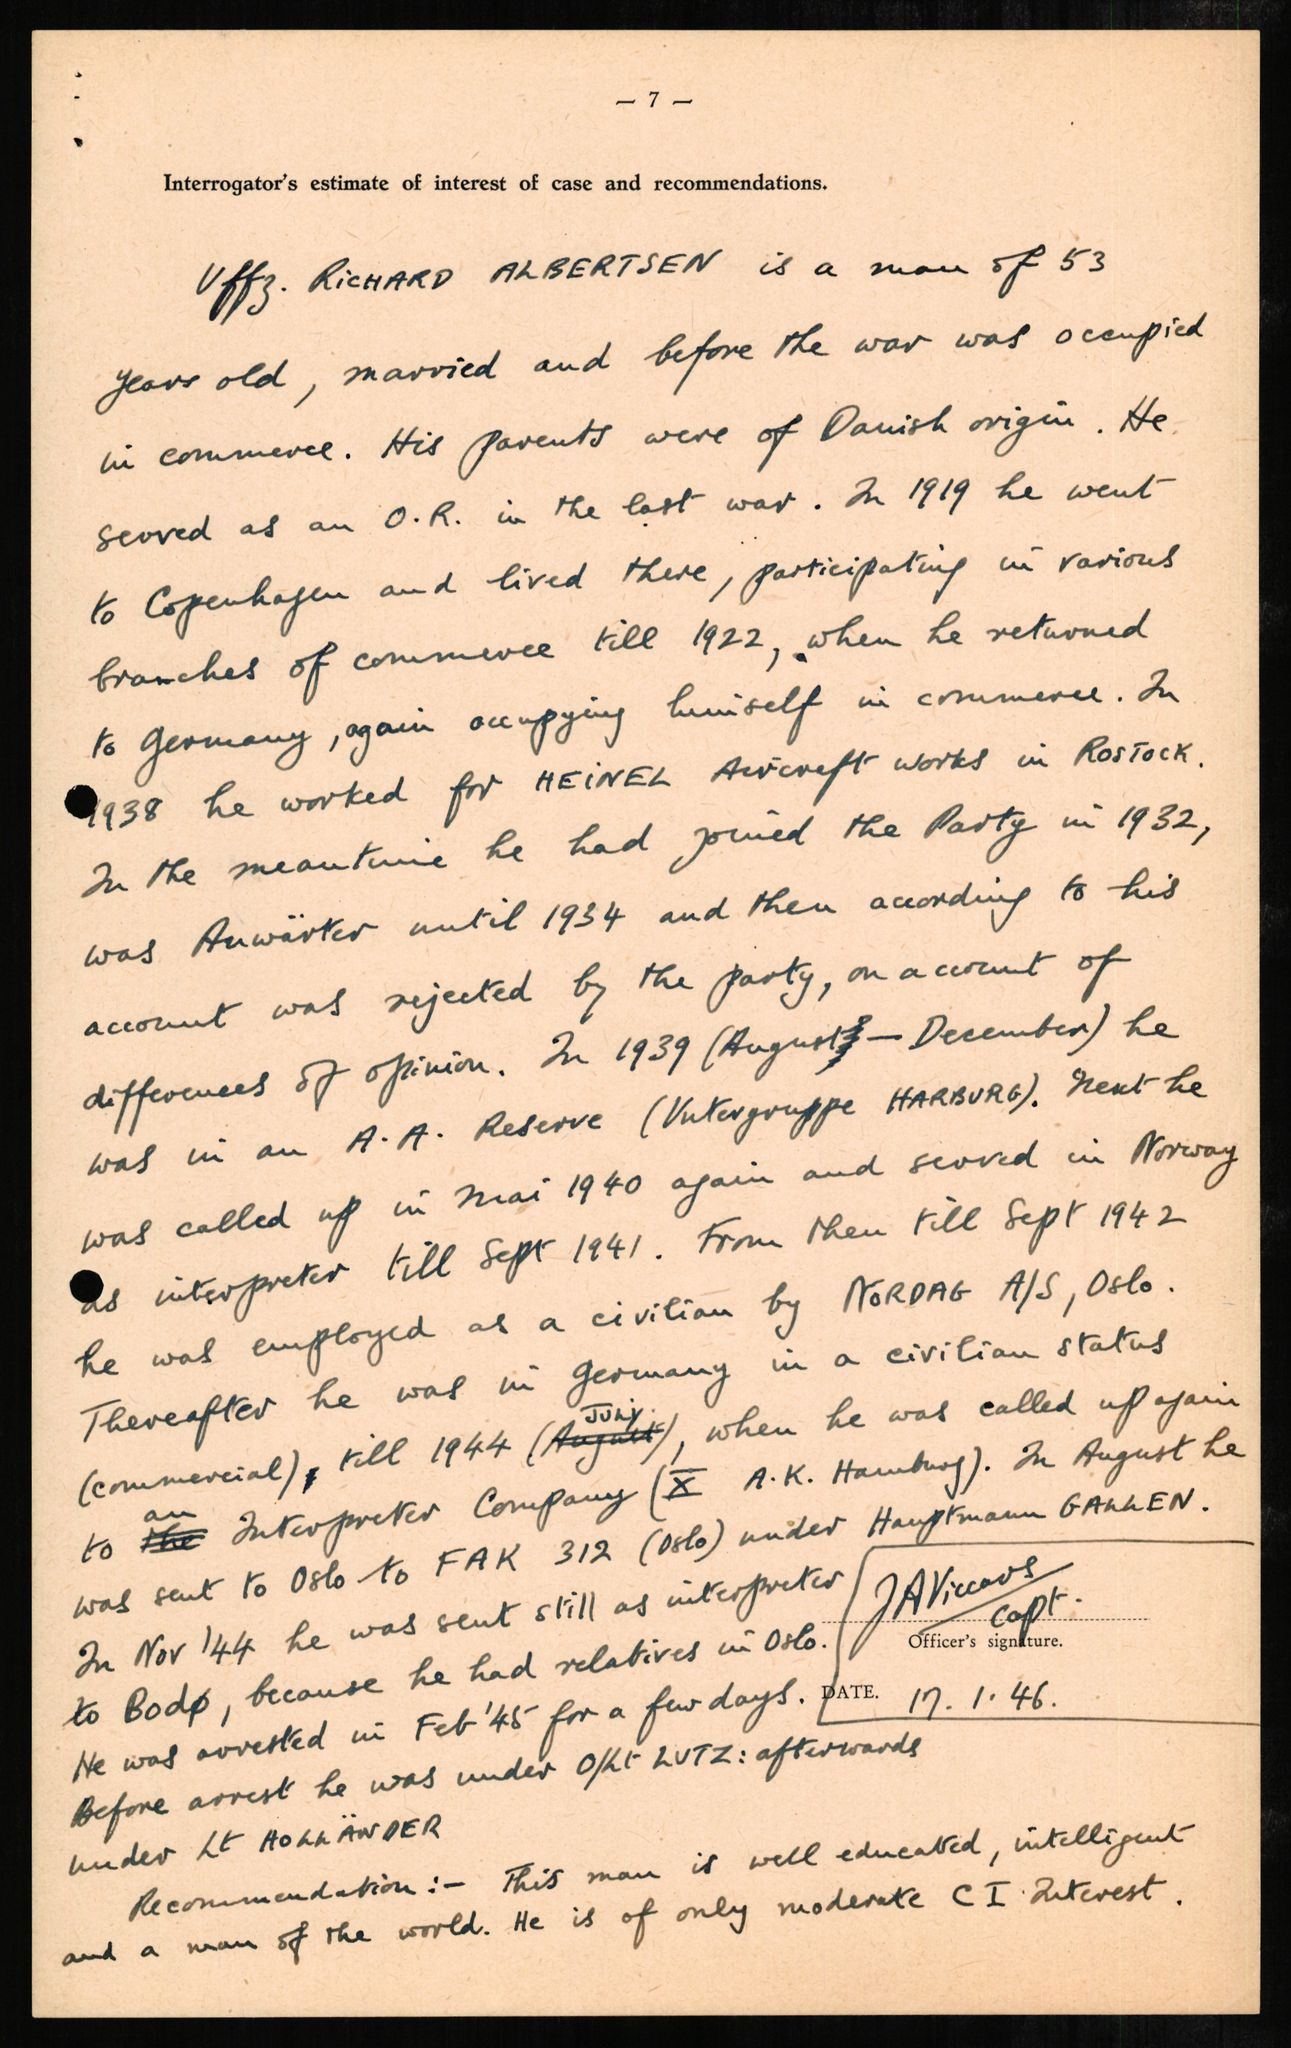 — 7 —
Interrogator's estimate of interest of case and recommendations.
Uffz. RICHARD ALBERTSEN is a man of 53
years old, married and before the war was occupied
in commerce. His parents were of Danish origin. He
served as an O.R. in the last war. In 1919 he went
to Copenhagen and lived there, participating in various
branches of commerce till 1922, when he returned
to Germany, again occupying himself in commerce. In
1938 he worked for HEINEL Aircraft works in ROSTOCK.
In the meantime he had joined the Party in 1932,
was Anwärter until 1934 and then according to his
account was rejected by the party, on account of
differences of opinion. In 1939 (August — December) he
was in an A.A. Reserve (Untergruppe HARBURG). Next he
was called up in Mai 1940 again and served in Norway
as interpreter till Sept 1941. From then till Sept 1942
he was employed as a civilian by NORDAG A/S, Oslo.
Thereafter he was in Germany in a civilian status
JULY
(commercial), till 1944 (August), when he was called up again
an
to the Interpreter Company (X A.K. Hamburg). In August he
was sent to Oslo to FAK 312 (Oslo) under Hauptmann GALLEN.
In Nov '44 he was sent still as interpreter
to Bodø, because he had relatives in Oslo.
He was arrested in Feb '45 for a few days.
Before arrest he was under O/Lt LUTZ: afterwards
under Lt HOLLÄNDER
JAViccars
Capt.
Officer's signature.
DATE. 17. 1. 46.
Recommendation:- This man is well educated, intelligent
and a man of the world. He is of only moderate C I Interest.